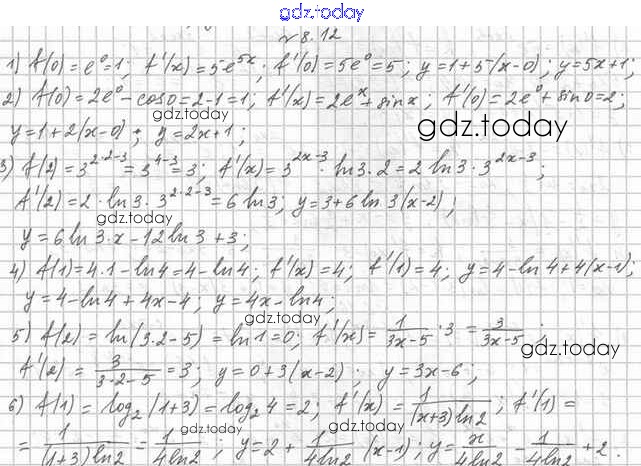 gdz.today
№ 8.12
1) f(0)=e⁰=1; f'(x)=5e^{5x}; f'(0)=5e⁰=5; y=1+5(x-0); y=5x+1;
2) f(0)=2e⁰-cos0=2-1=1; f'(x)=2e^x+sinx; f'(0)=2e⁰+sin0=2;
y=1+2(x-0); y=2x+1;
gdz.today
3) f(2)=3^{2·2-3}=3^{4-3}=3; f'(x)=3^{2x-3}·ln3·2=2ln3·3^{2x-3};
f'(2)=2·ln3·3^{2·2-3}=6ln3; y=3+6ln3(x-2);
gdz.today
y=6ln3·x-12ln3+3;
4) f(1)=4·1-ln4=4-ln4; f'(x)=4; f'(1)=4; y=4-ln4+4(x-1);
y=4-ln4+4x-4; y=4x-ln4;
gdz.today
5) f(2)=ln(3·2-5)=ln1=0; f'(x)=1/(3x-5)·3=3/(3x-5);
gdz.today
f'(2)=3/(3·2-5)=3; y=0+3(x-2); y=3x-6;
6) f(1)=log₂(1+3)=log₂4=2; f'(x)=1/((x+3)ln2); f'(1)=
gdz.today
=1/((1+3)ln2)=1/(4ln2); y=2+1/(4ln2)(x-1); y=x/(4ln2)-1/(4ln2)+2.
gdz.today